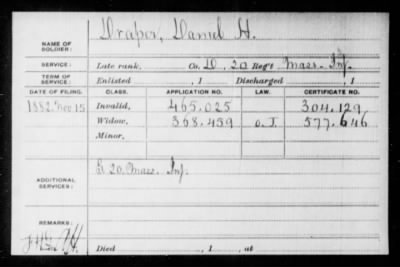 NAME OF SOLDIER: Draper, Daniel H.
SERVICE: Late rank, Co. D, 20 Reg't Mass. Inf.
TERM OF SERVICE: Enlisted , 1 Discharged , 1
DATE OF FILING. CLASS. APPLICATION NO. LAW. CERTIFICATE NO.
1882. Nov 15 Invalid, 465.025 304.129
Widow, 368.459 O.L. 577.646
Minor,
ADDITIONAL SERVICES: 20 Mass. Inf.
REMARKS:
Died , 1 , at